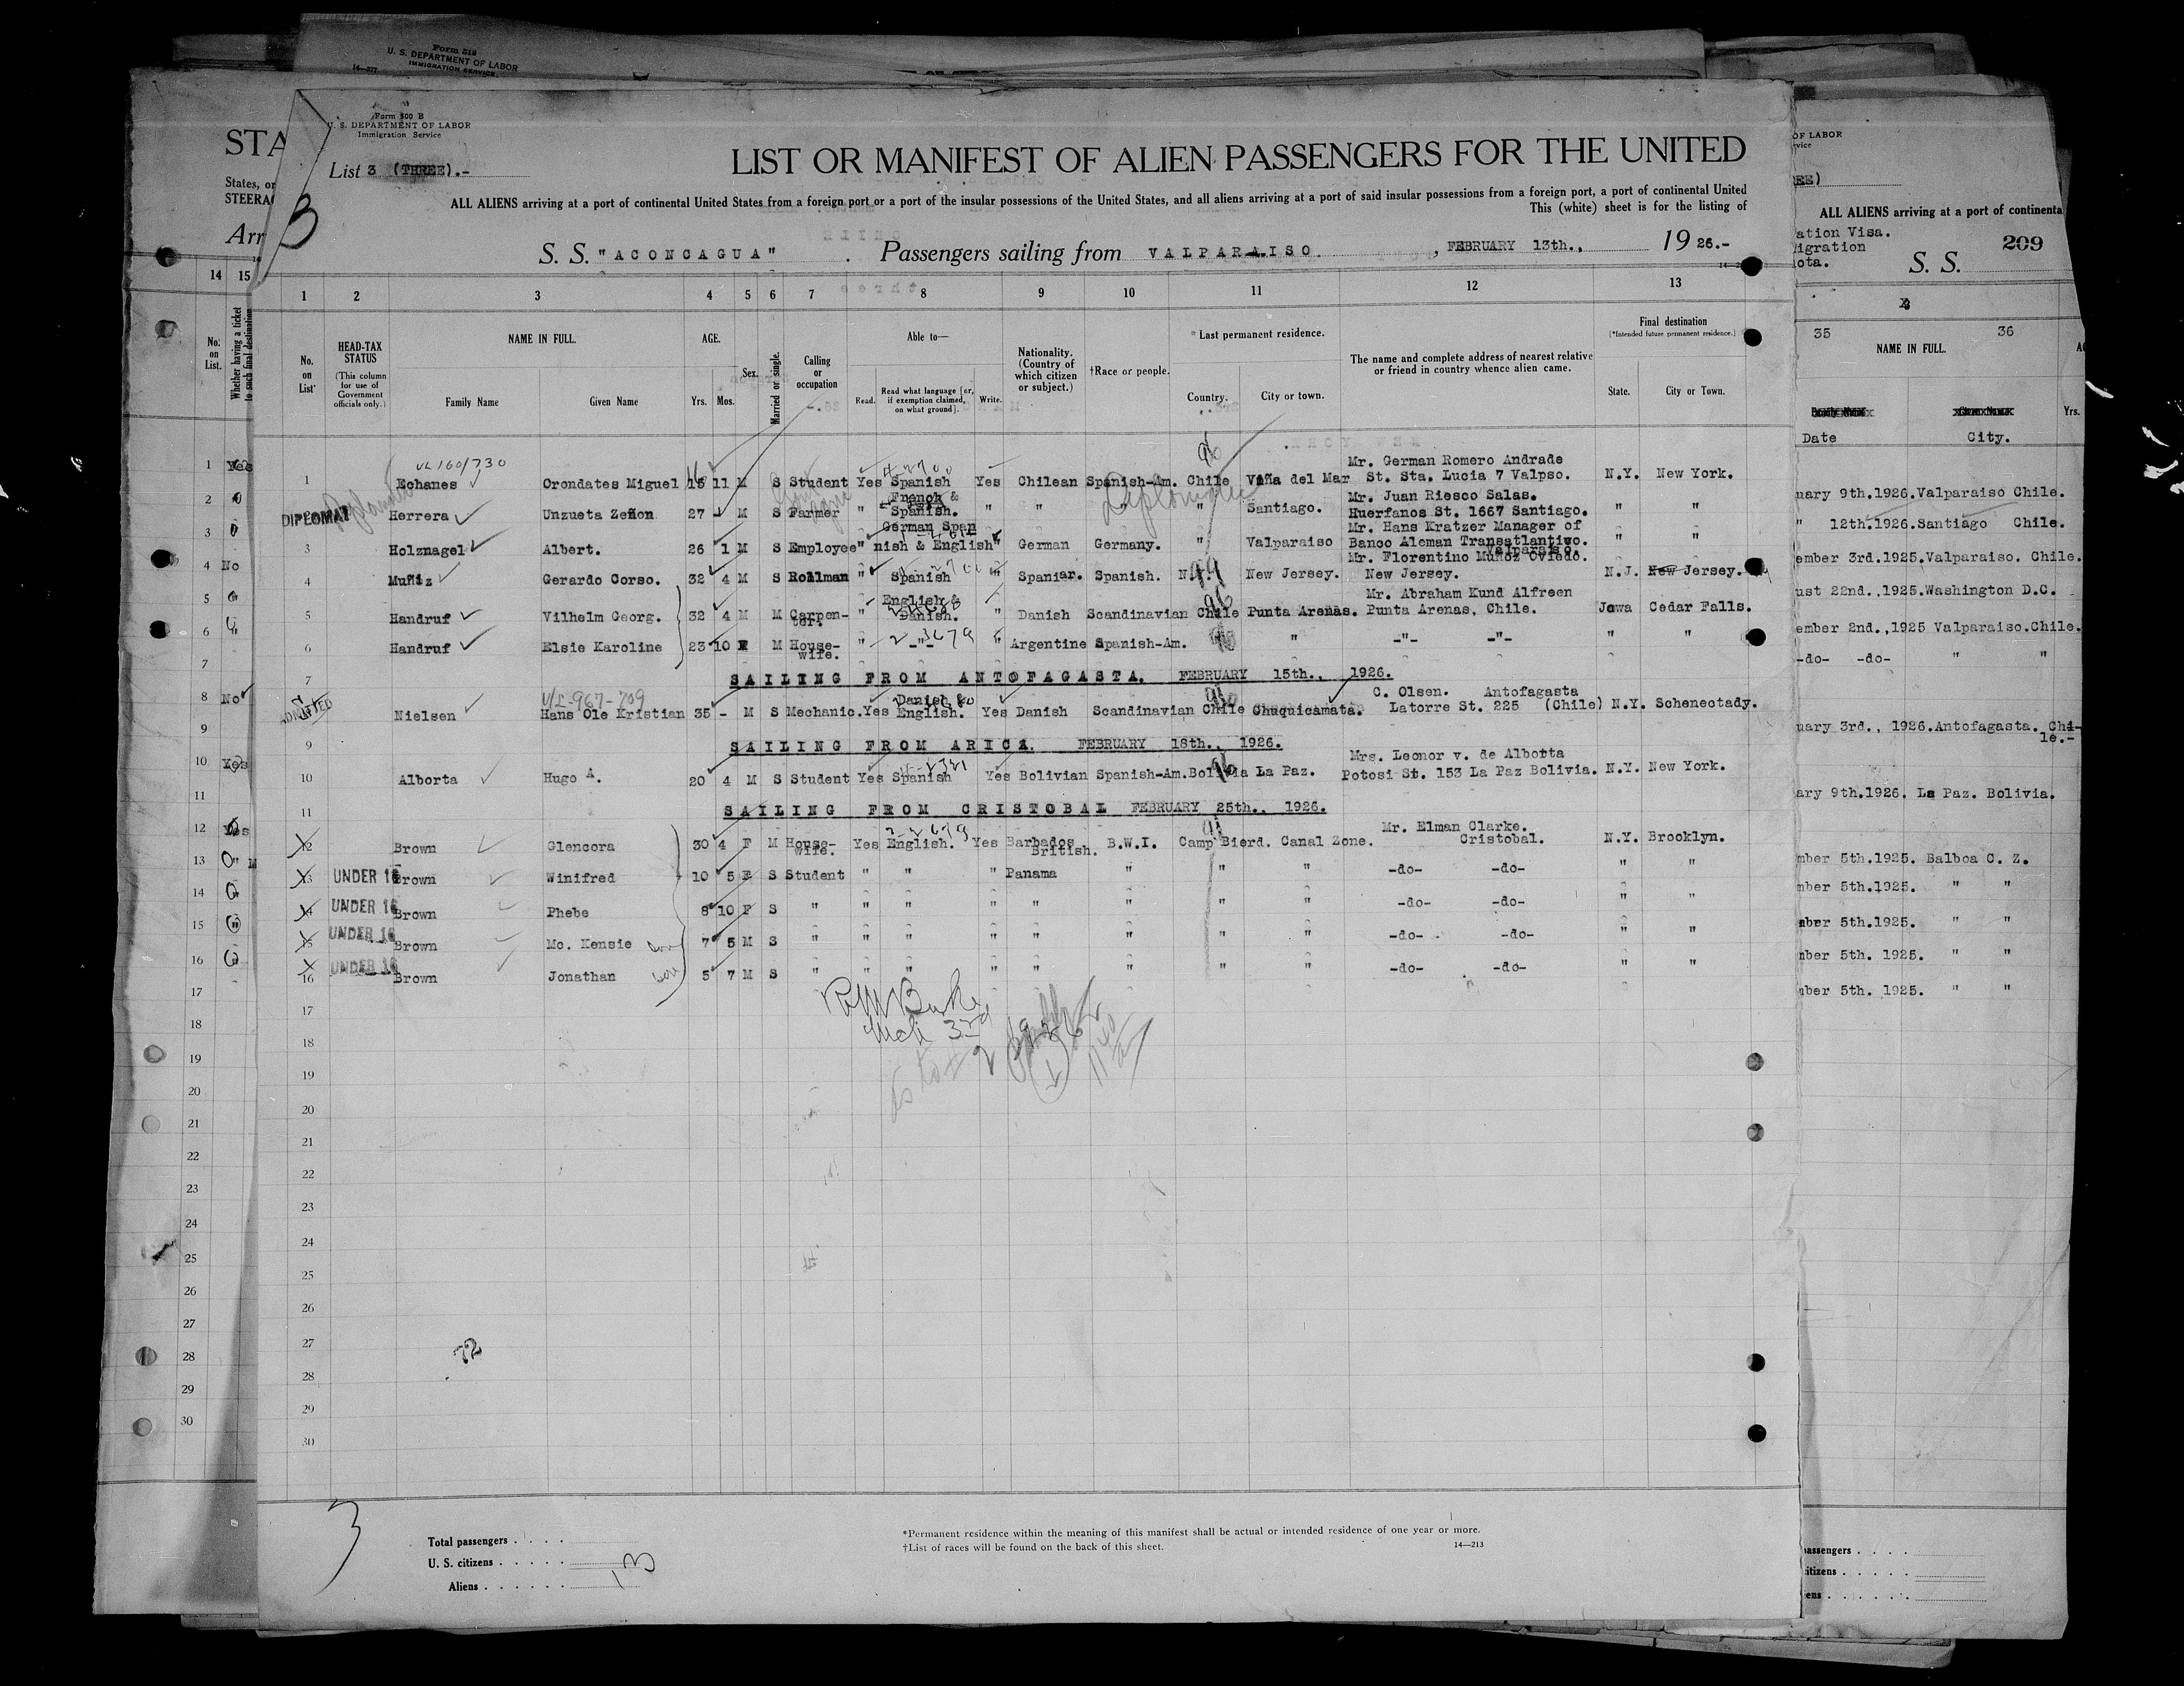 Form 518
U. S. DEPARTMENT OF LABOR
IMMIGRATION SERVICE
14—277
Form 500 B
U. S. DEPARTMENT OF LABOR
Immigration Service
List 3 (THREE).-
3
LIST OR MANIFEST OF ALIEN PASSENGERS FOR THE UNITED
ALL ALIENS arriving at a port of continental United States from a foreign port or a port of the insular possessions of the United States, and all aliens arriving at a port of said insular possessions from a foreign port, a port of continental United
This (white) sheet is for the listing of
S. S. "ACONCAGUA" . Passengers sailing from VALPARAISO , FEBRUARY 13th., 1926.-
1 2 3 4 5 6 7 8 9 10 11 12 13
No. on List
HEAD-TAX STATUS (This column for use of Government officials only.)
NAME IN FULL.
Family Name Given Name
AGE.
Yrs. Mos.
Sex.
Married or single.
Calling or occupation
Able to—
Read. Read what language [or, if exemption claimed, on what ground]. Write.
Nationality. (Country of which citizen or subject.)
†Race or people.
*Last permanent residence.
Country. City or town.
The name and complete address of nearest relative or friend in country whence alien came.
Final destination
(*Intended future permanent residence.)
State. City or Town.
VL 160/730
1 Echanes Orondates Miguel 15 11 M S Student Yes Spanish Yes Chilean Spanish-Am. Chile Viña del Mar Mr. German Romero Andrade St. Sta. Lucia 7 Valpso. N.Y. New York.
DIPLOMAT Herrera Unzueta Zeñon 27 - M S Farmer " French & Spanish. " " " " Santiago. Mr. Juan Riesco Salas. Huerfanos St. 1667 Santiago. " "
Diplomatic
3 Holznagel Albert. 26 1 M S Employee " German Spanish & English " German Germany. " Valparaiso Mr. Hans Kratzer Manager of Banco Aleman Transatlantivo. Valparaiso. " "
4 Muñiz Gerardo Corso. 32 4 M S Rollman " Spanish " Spaniar. Spanish. New Jersey. Mr. Florentino Muñoz Oviedo. New Jersey. N.J. New Jersey.
5 Handruf Vilhelm Georg. 32 4 M M Carpenter. " English & Danish. " Danish Scandinavian Chile Punta Arenas. Mr. Abraham Kund Alfreen Punta Arenas, Chile. Jowa Cedar Falls.
6 Handruf Elsie Karoline 23 10 F M House-wife. " -"- " Argentine Spanish-Am. " " -"- -"- " "
7 SAILING FROM ANTOFAGASTA. FEBRUARY 15th., 1926.
V/L-967-709
ADMITTED Nielsen Hans Ole Kristian 35 - M S Mechanic. Yes Danish & English. Yes Danish Scandinavian Chile Chuquicamata. C. Olsen. Antofagasta Latorre St. 225 (Chile) N.Y. Schenectady.
9 SAILING FROM ARICA. FEBRUARY 18th., 1926.
10 Alborta Hugo A. 20 4 M S Student Yes Spanish Yes Bolivian Spanish-Am. Bolivia La Paz. Mrs. Leonor v. de Alborta Potosi St. 153 La Paz Bolivia. N.Y. New York.
11 SAILING FROM CRISTOBAL FEBRUARY 25th., 1926.
12 Brown Glencora 30 4 F M House-wife. Yes English. Yes Barbados British. B.W.I. Camp Bierd. Canal Zone. Mr. Elman Clarke. Cristobal. N.Y. Brooklyn.
13 UNDER 16 Brown Winifred 10 5 F S Student " " " Panama " " " -do- -do- " "
14 UNDER 16 Brown Phebe 8 10 F S " " " " " " " " -do- -do- " "
15 UNDER 16 Brown Mc. Kensie 7 5 M S " " " " " " " " -do- -do- " "
16 UNDER 16 Brown Jonathan 5 7 M S " " " " " " " " -do- -do- " "
17
18
19
20
21
22
23
24
25
26
27
28
29
30
3
Total passengers
U. S. citizens
Aliens 13
*Permanent residence within the meaning of this manifest shall be actual or intended residence of one year or more.
†List of races will be found on the back of this sheet.
14—213
STA
States, or
STEERA
Arr
14 15
No. on List.
Whether having a ticket to such final destination
1 Yes
2
3
4 No
5
6
7
8 No
9
10 Yes
11
12 Yes
13
14
15
16
17
18
19
20
21
22
23
24
25
26
27
28
29
30
OF LABOR
vice
EE)
ALL ALIENS arriving at a port of continenta
ation Visa.
igration
ota.
S. S. 209
35 36
NAME IN FULL.
Yrs.
Date City.
uary 9th.1926.Valparaiso Chile.
" 12th.1926.Santiago Chile.
ember 3rd.1925.Valparaiso. Chile.
ust 22nd.,1925.Washington D.C.
ember 2nd.,1925 Valparaiso.Chile.
-do- -do- " "
uary 3rd., 1926.Antofagasta. Chile.-
ary 9th.1926. La Paz. Bolivia.
mber 5th.1925. Balboa C. Z.
mber 5th.1925. " "
mber 5th.1925. " "
mber 5th. 1925. " "
mber 5th. 1925. " "
assengers
itizens
ens